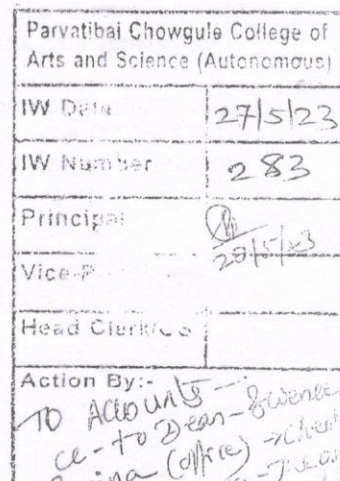 Parvatibai Chowgule College of
Arts and Science (Autonomous)
IW Date 27/5/23
IW Number 283
Principal
Vice-P
Head Clerk/OS
Action By:-
To Accounts -
cc - to Dean -
(office)